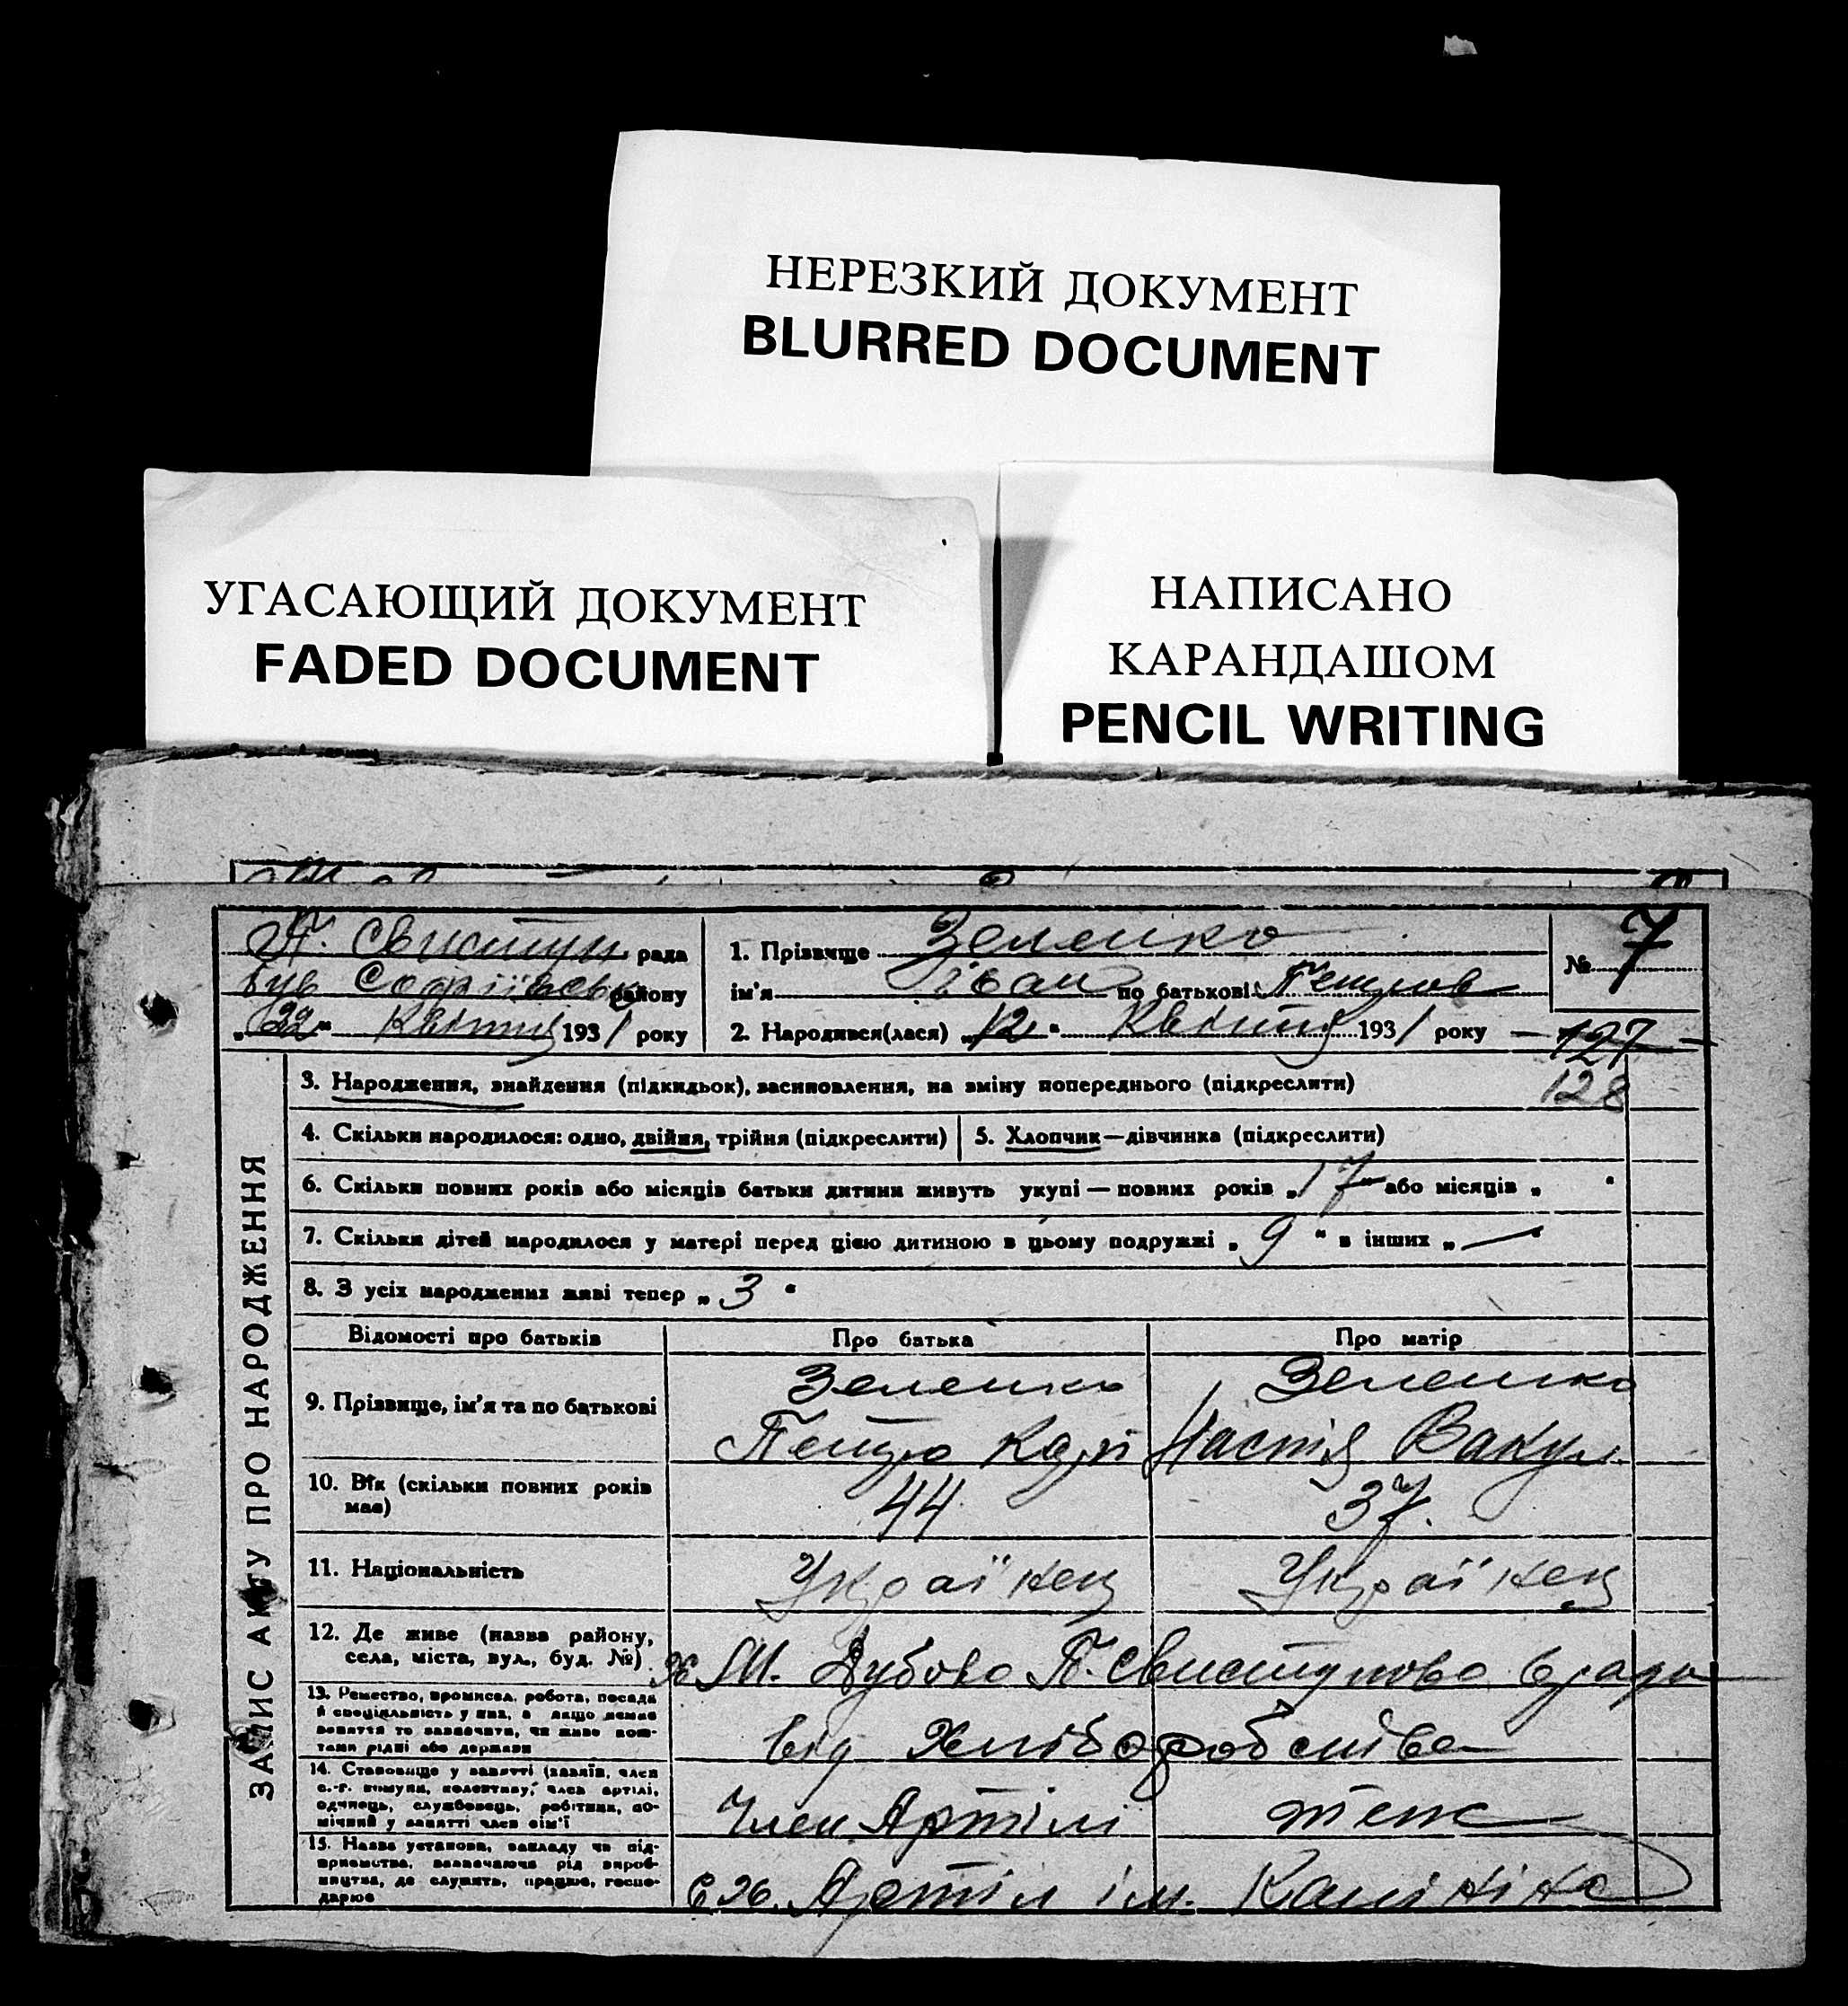 НЕРЕЗКИЙ ДОКУМЕНТ
BLURRED DOCUMENT
УГАСАЮЩИЙ ДОКУМЕНТ
FADED DOCUMENT
НАПИСАНО
КАРАНДАШОМ
PENCIL WRITING
П. Свистун. рада
був Софіївськ району
„22“ Квітня 1931 року
1. Прізвище Зеленко
ім'я Іван по батькові Петров
2. Народився(лася) „12“ Квітня 1931 року
№ 7
127
128
ЗАПИС АКТУ ПРО НАРОДЖЕННЯ
3. Народження, знайдення (підкидьок), засиновлення, на зміну попереднього (підкреслити)
4. Скільки народилося: одно, двійня, трійня (підкреслити)
5. Хлопчик—дівчинка (підкреслити)
6. Скільки повних років або місяців батьки дитини живуть укупі — повних років „17“ або місяців „ “
7. Скільки дітей народилося у матері перед цією дитиною в цьому подружжі „9“ в інших „—“
8. З усіх народжених живі тепер „3“
Відомості про батьків Про батька Про матір
9. Прізвище, ім'я та по батькові
Зеленко
Петро
Зеленко
Настя Вакул.
10. Вік (скільки повних років має)
44
37.
11. Національність
Українец
Українец
12. Де живе (назва району,
села, міста, вул., буд. №)
х М. Дубово П. Свистуново
13. Ремество, промисел, робота, посада
й спеціяльність у них, а якщо немає
заняття то зазначити, чи живе кош-
тами рідні або держави
від Хліборобства
14. Становище у занятті (хазяїн, член
с.-г. комуни, колективу, член артілі,
одинець, службовець, робітник, по-
мічний у занятті член сім'ї
Член Артілі
теж
15. Назва установи, закладу чи під-
приємства, зазначаючи рід вироб-
ництва, де служить, працює, госпо-
дарює
Артіл ім. Калініна